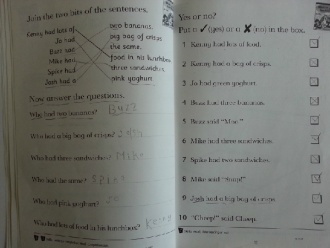 Join the two bits of the sentences.
Kenny had lots of
Jo had
Bazz had
Mike had
Spike had
Josh had a
two bananas.
big bag of crisps
the same.
food in his lunchbox
three sandwiches.
pink yoghurt.
Now answer the questions.
Who had two bananas? Buzz
Who had a big bag of crisps? Josh
Who had three sandwiches? Mike
Who had the same? Spike
Who had pink yoghurt? Jo
Who had lots of food in his lunchbox?
Yes or no?
Put a ✓ (yes) or a ✗ (no) in the box.
1 Kenny had lots of food.
2 Kenny had a bag of crisps.
3 Jo had green yoghurt.
4 Bazz had three bananas.
5 Bazz said "Moo."
6 Mike had three sandwiches.
7 Spike had two sandwiches.
8 Mike said
9 Josh had a big bag of crisps.
10 "Cheep!" said Cheep.